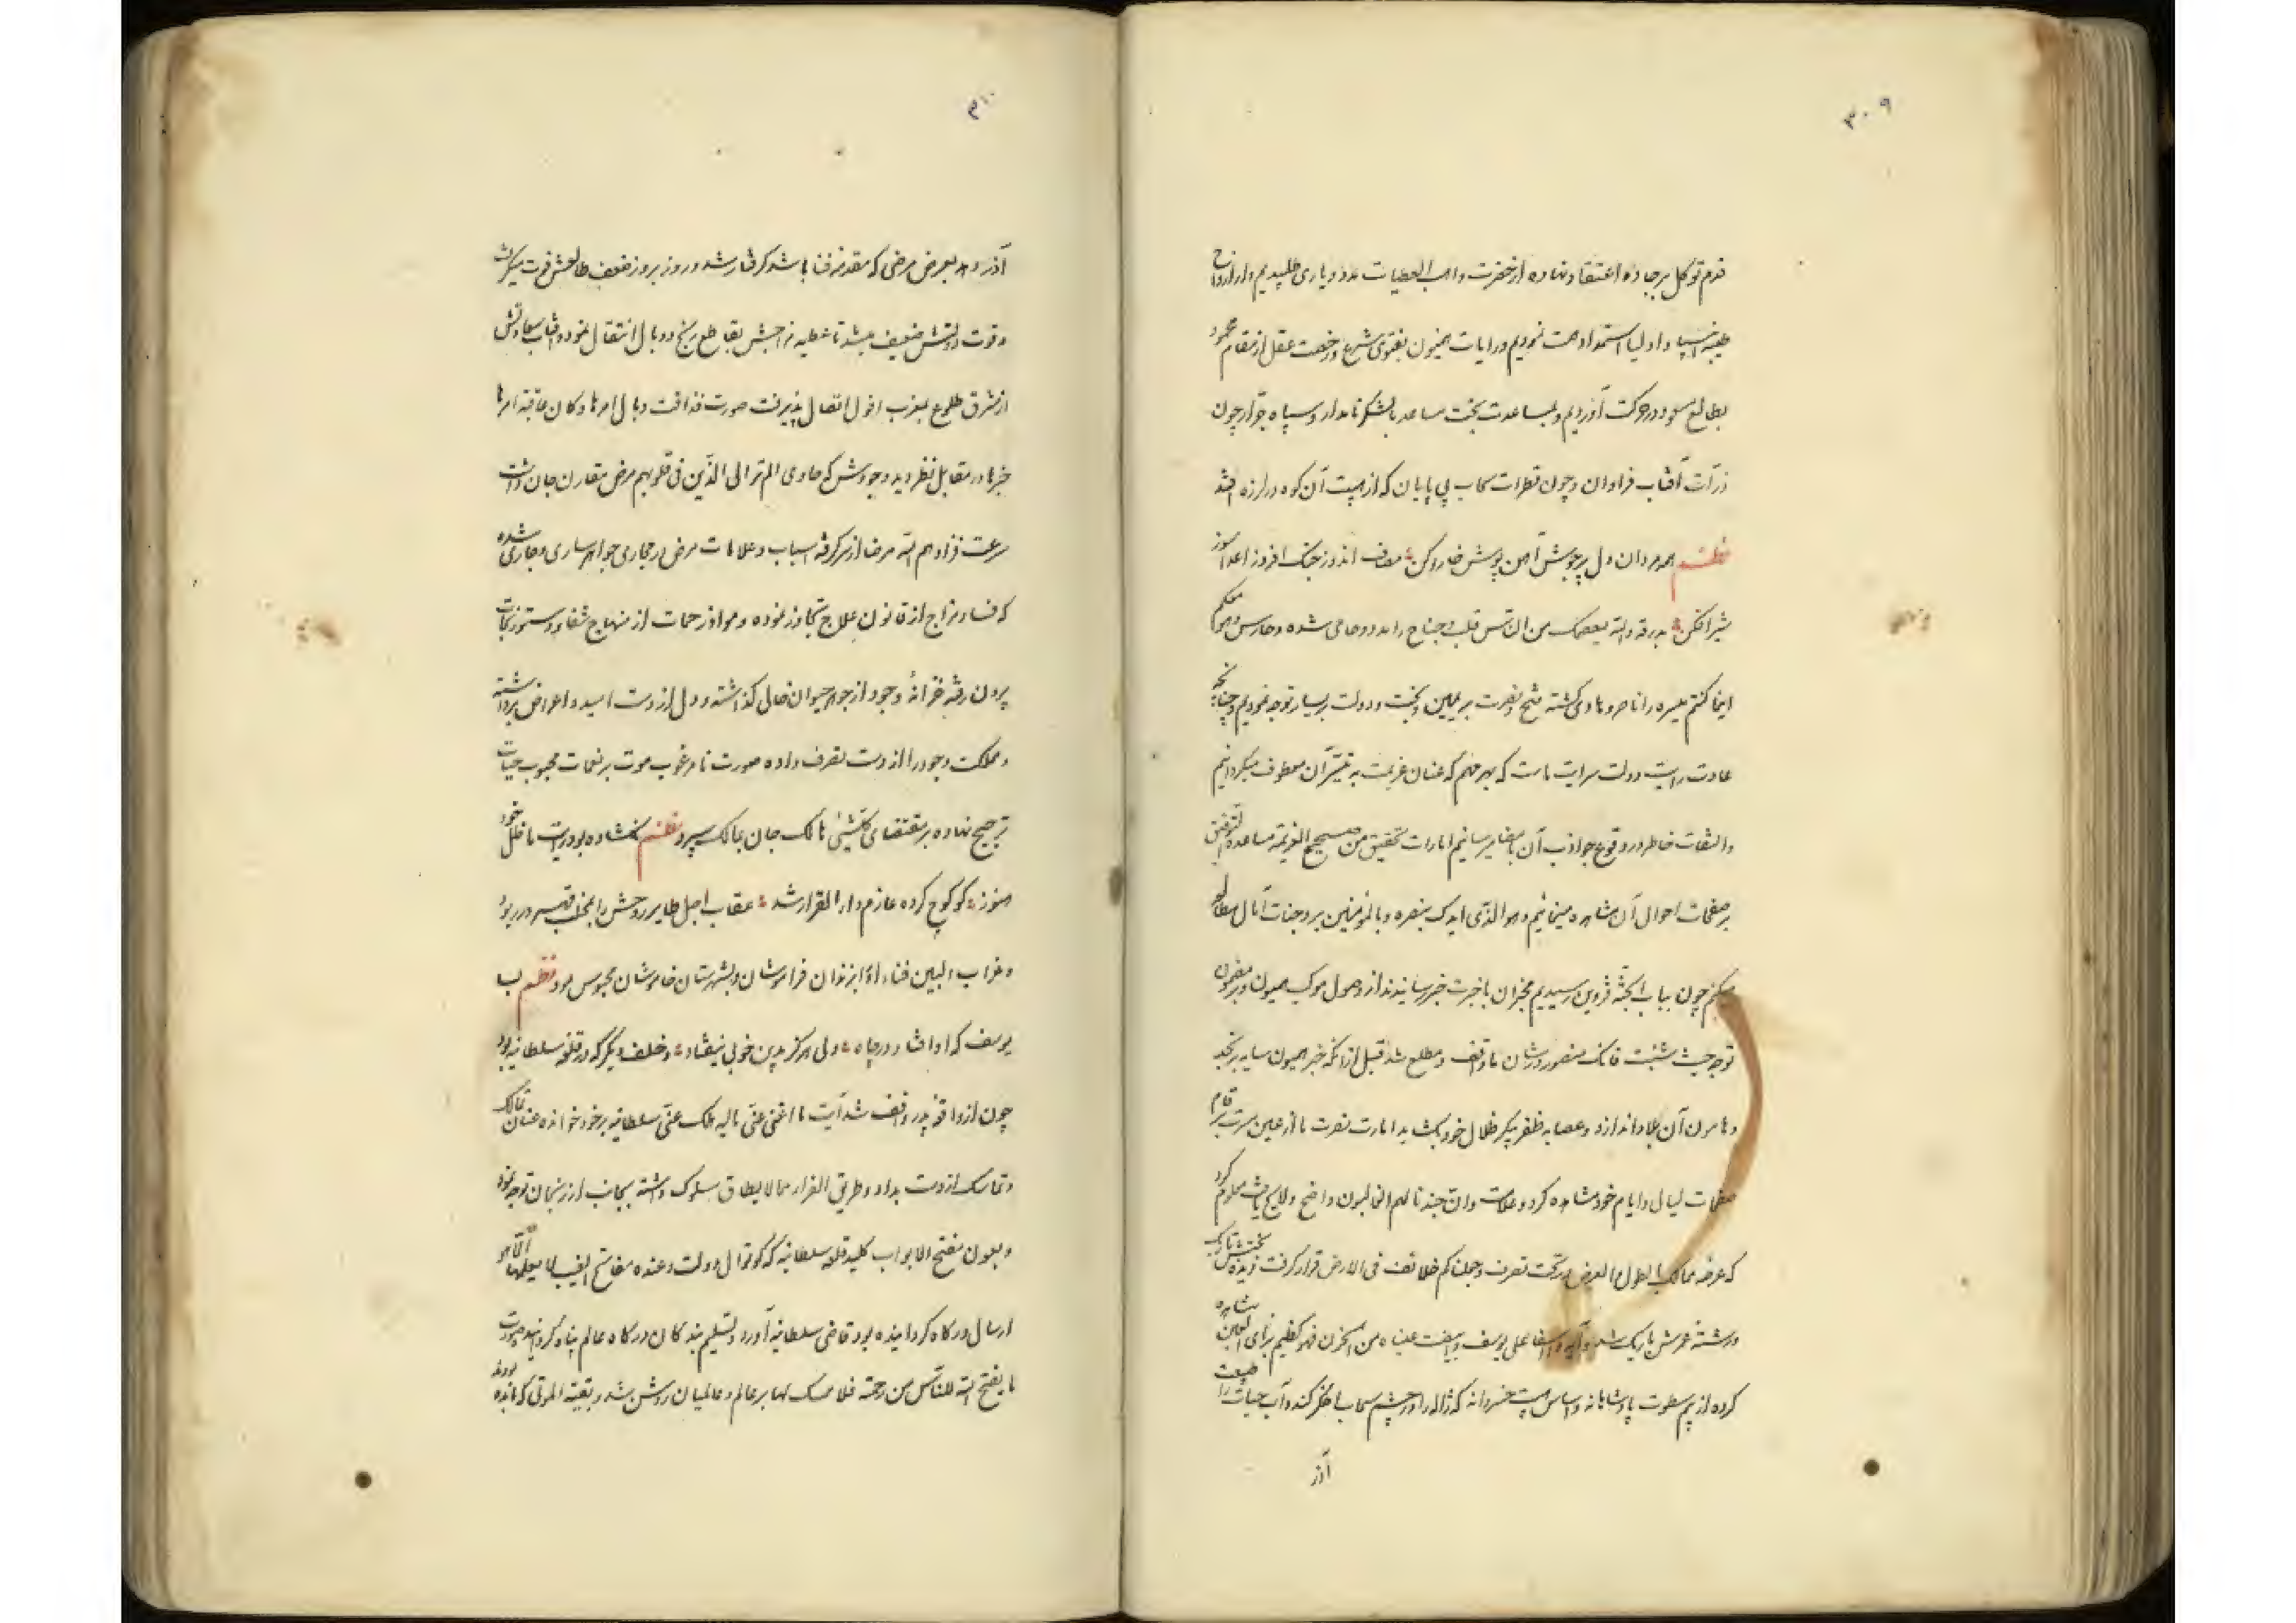 ۳۰۹
قدم توکل بر جاده اعتقاد نهاده از حضرت واهب العطیات مدد و یاری طلبیدیم و از ارواح
طیبه انبیا و اولیا استمداد همت نمودیم و رایات همیون بفتوی شرع و رخصت عقل از مقام محمود
بطالع مسعود در حرکت آوردیم و بمساعدت بخت مساعد با لشکر نامدار و سپاه جرار چون
ذرات آفتاب فراوان و چون قطرات سحاب بی پایان که از هیبت آن کوه در لرزه افتد
نظم همه مردان دل پرجوش آهن پوش خاره کن مصاف اندوز جنک افروز اعدا سوز
شیر افکن بدرقه والله یعصمک من الناس قلب و جناح را مدد و حامی شده و حارس و هو معکم
اینما کنتم میسره را ناصر و هادی کشته فتح و نصرت بر یمین و بخت و دولت بر یسار توجه نمودیم و چنانچه
عادت رایت دولت سرایت ماست که بهر مهم که عنان عزیمت به تیسر آن معطوف میکردانیم
و التفات خاطر در وقوع جواذب آن بامضا میرسانیم امارات تحقیق من صحیح العزیمة مساعده التوفیق
بر صفحات احوال آن مشاهده مینمائیم و هو الذی ایدک بنصره و بالمؤمنین بر وجنات آمال مطالعه
میکنیم چون بباب الجنّه قزوین رسیدیم مخبران باخبرت خبر رسانیدند از وصول موکب همیون و بر مضمون
توجه حیث شئت فانک منصور در شان ما واقف و مطلع شد قبل از آنکه خبر همیون سایه بر نجد
و هامون آن بلاد اندازد و عصابه ظفر پیکر ظلال خود بکشاید امارت نصرت ما از عین سرت بر قام
صفحات لیالی و ایام خود مشاهده کرد و علامت وان جندنا لهم الغالبون واضح و لایح یافت معلوم کرد
که عرضه ممالک بالطول و العرض در تحت تصرف وجعلناکم خلائف فی الارض قرار کرفت دیده بختش تاریک
و رشته عمرش باریک شد و آیه وا اسفا علی یوسف وابیضت عیناه من الحزن فهو کظیم برای العین مشاهده
کرده از بیم سطوت پادشاهانه و اساس هیبت خسروانه که ژاله را در چشم سحاب اخکر کند و آب حیات را طبیعت
آذر
۳۱۰
آذر دهد بعرض مرضی که مقدمه فنا باشد کرفتار شد و روز بروز ضعف طالعش قوت میکرفت
و قوت دولتش ضعیف میشد تا عطیه مزاجش بقاطع رنج و وبال انتقال نمود و آفتاب سعادتش
از مشرق طلوع بمغرب افول اتصال پذیرفت صورت فذاقت وبال امرها و کان عاقبة امرها
خسرا در مقابل نظر دید وجودش که حاوی الم تر الی الذین فی قلوبهم مرض مقارن جان داشت
سرعت فزادهم الله مرضا از سر کرفته اسباب و علامات مرض در مجاری جواهر ساری و جاری شده
که فساد مزاج از قانون علاج تجاوز نموده و مواد زحمات از منهاج شفا و دستور نجات
برون رفته خزانهٔ وجود از جواهر حیوان خالی کذاشته و دل از دست امید و اعراض برداشته
و مملکت وجود را از دست تصرف داده صورت نامرغوب موت بر نغمات محبوب حیات
ترجیح نهاده بر مقتضای کل شیئی هالک جان بمالک سپرد نظم نکشاده بود رایت ما ظل خود
هنوز کو کوچ کرده عازم دار القرار شد عقاب اجل طایر روحش را بمخلب قهر در ربود
و غراب البین فناء او را بزندان فراموشان و بشهرستان خاموشان محبوس نمود نظم ب
یوسف که او افتاد در چاه ولی هرکز بدین خوبی نیفتاد و خلف دیکر که در قلعه سلطانیه بود
چون از واقعه پدر واقف شد آیت ما اغنی عنی مالیه هلک عنی سلطانیه بر خود خوانده عنان تمالک
و تماسک از دست بداد و طریق الفرار مما لا یطاق مسلوک داشته بجانب ارزنجان توجه نمود
و بعون مفتح الابواب کلید قلعه سلطانیه که کوتوال دولت وعنده مفاتح الغیب لا یعلمها الا هو
ارسال درکاه کردانیده بود قاضی سلطانیه آورد و تسلیم بندکان درکاه عالم پناه کردانید و صورت
ما یفتح الله للناس من رحمة فلا ممسک لها بر عالم و عالمیان روشن شد و بقیة الموتی که مانده بودند